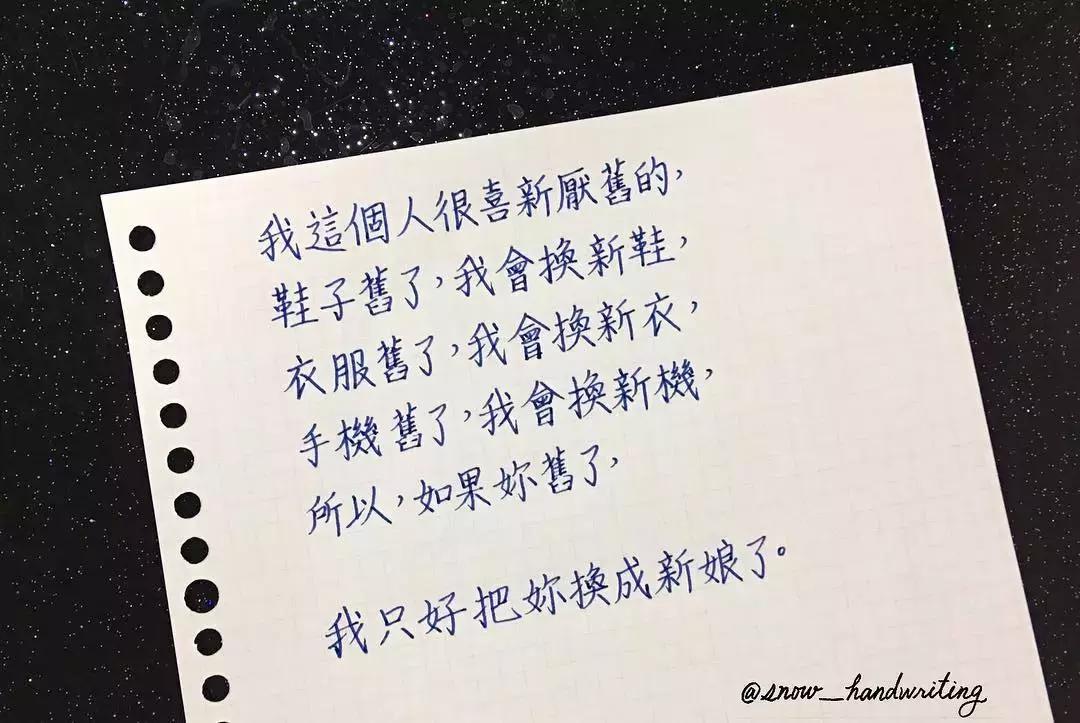 我這個人很喜新厭舊的，
鞋子舊了，我會換新鞋，
衣服舊了，我會換新衣，
手機舊了，我會換新機，
所以，如果妳舊了，
我只好把妳換成新娘了。
@snow__handwriting